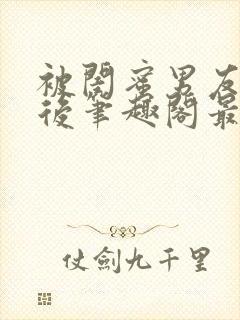 被閨蜜男友
後筆趣閣最
仗劍九千里